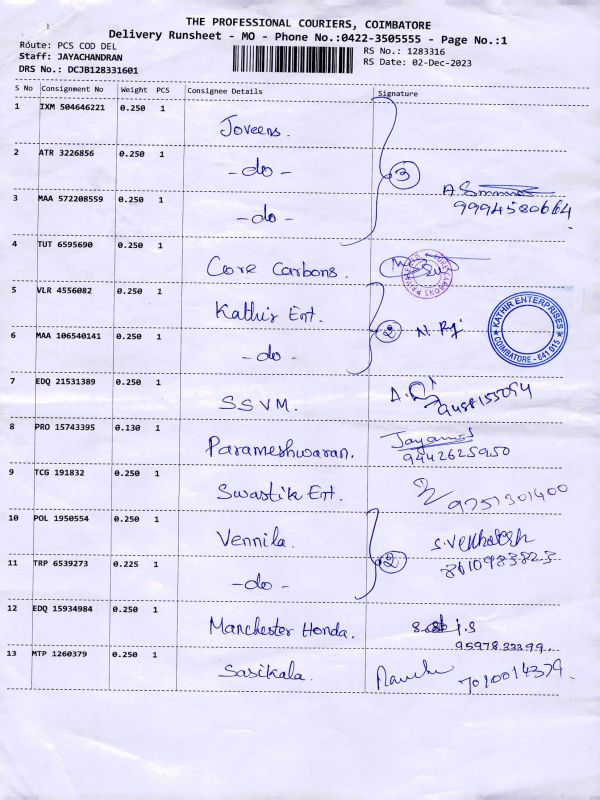 THE PROFESSIONAL COURIERS, COIMBATORE
Delivery Runsheet - MO - Phone No.:0422-3505555 - Page No.:1
Route: PCS COD DEL RS No.: 1283316
Staff: JAYACHANDRAN RS Date: 02-Dec-2023
DRS No.: DCJB128331601
S No Consignment No Weight PCS Consignee Details Signature
1 IXM 504646221 0.250 1
Joveens.
2 ATR 3226856 0.250 1
-do- 3
3 MAA 572208559 0.250 1
-do- 9994580664
4 TUT 6595690 0.250 1
Core Carbons.
5 VLR 4556082 0.250 1
Kathir Ent. 2 N. KATHIR ENTERPRISES COIMBATORE - 641 015
6 MAA 106540141 0.250 1
-do-
7 EDQ 21531389 0.250 1
SSVM. 9488155094
8 PRO 15743395 0.130 1
Parameshwaran. 9442625950
9 TCG 191832 0.250 1
Swastik Ent. 9751301400
10 POL 1950554 0.250 1
Vennila. S.Venkatesh
11 TRP 6539273 0.225 1
-do- 2 8610983823
12 EDQ 15934984 0.250 1
Manchester Honda. 9597833399
13 MTP 1260379 0.250 1
Sasikala. 7010014379